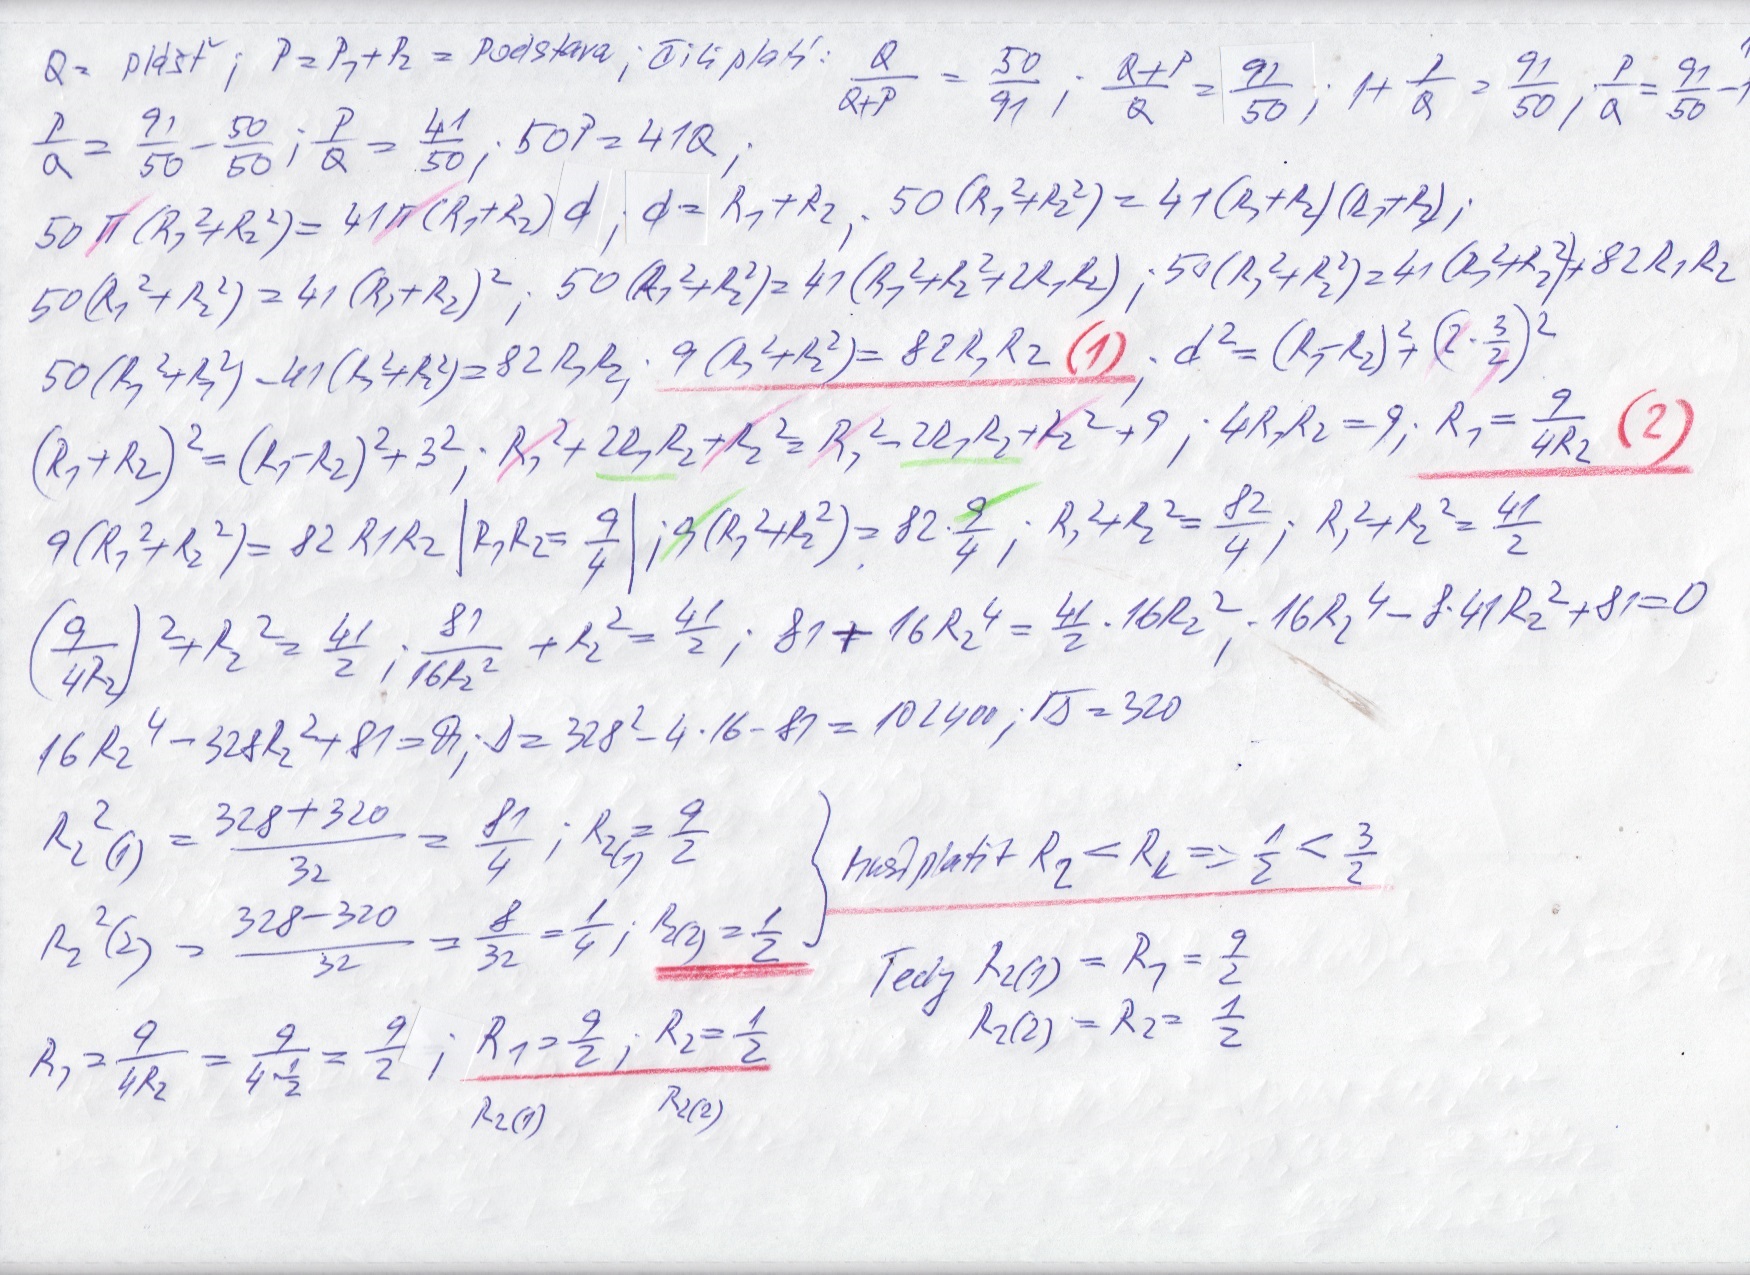 Q = plášť ; P = P₁ + P₂ = Podstava ; Čili platí: Q/(Q+P) = 50/91 ; (Q+P)/Q = 91/50 ; 1 + P/Q = 91/50 ; P/Q = 91/50 - 1
P/Q = 91/50 - 50/50 ; P/Q = 41/50 ; 50P = 41Q ;
50π(R₁²+R₂²) = 41π(R₁+R₂)d ; d = R₁+R₂ ; 50(R₁²+R₂²) = 41(R₁+R₂)(R₁+R₂) ;
50(R₁²+R₂²) = 41(R₁+R₂)² ; 50(R₁²+R₂²) = 41(R₁²+R₂²+2R₁R₂) ; 50(R₁²+R₂²) = 41(R₁²+R₂²)+82R₁R₂
50(R₁²+R₂²) - 41(R₁²+R₂²) = 82R₁R₂ ; 9(R₁²+R₂²) = 82R₁R₂ (1) ; d² = (R₁-R₂)² + (2·3/2)²
(R₁+R₂)² = (R₁-R₂)² + 3² ; R₁² + 2R₁R₂ + R₂² = R₁² - 2R₁R₂ + R₂² + 9 ; 4R₁R₂ = 9 ; R₁ = 9/4R₂ (2)
9(R₁²+R₂²) = 82 R1R₂ | R₁R₂ = 9/4 | ; 9(R₁²+R₂²) = 82·9/4 ; R₁²+R₂² = 82/4 ; R₁²+R₂² = 41/2
(9/4R₂)² + R₂² = 41/2 ; 81/16R₂² + R₂² = 41/2 ; 81 + 16R₂⁴ = 41/2·16R₂² ; 16R₂⁴ - 8·41R₂² + 81 = 0
16R₂⁴ - 328R₂² + 81 = 0 ; D = 328² - 4·16-81 = 102400 ; √D = 320
R₂²(1) = (328+320)/32 = 81/4 ; R₂(1) = 9/2
musí platit R₂ < Rk => 1/2 < 3/2
R₂²(2) = (328-320)/32 = 8/32 = 1/4 ; R₂(2) = 1/2
Tedy R₂(1) = R₁ = 9/2
R₂(2) = R₂ = 1/2
R₁ = 9/4R₂ = 9/(4·1/2) = 9/2 ; R₁ = 9/2 ; R₂ = 1/2
R₂(1) R₂(2)